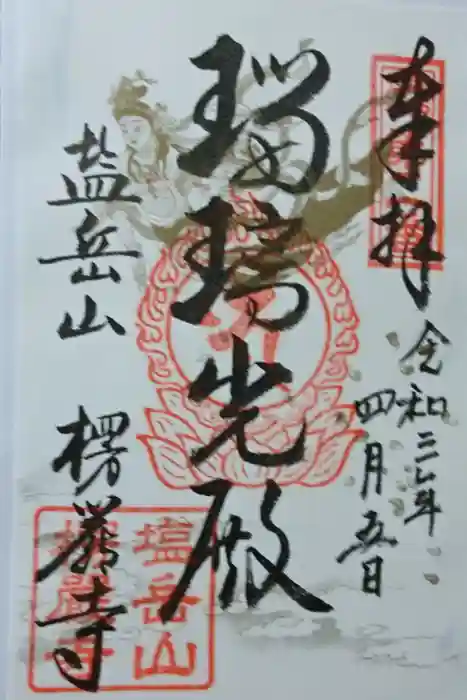 奉拝
令和三年
四月五日
瑠璃光殿
塩岳山
楞厳寺
塩岳山
楞厳寺